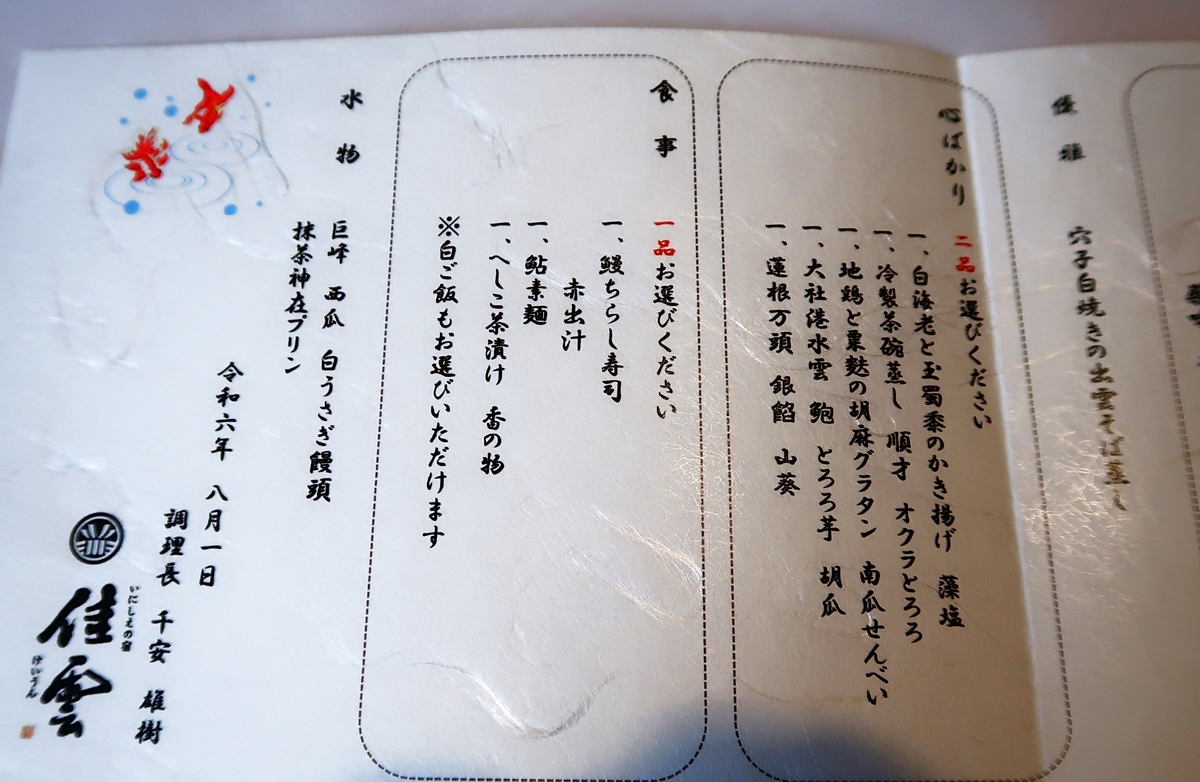 優雅
穴子白焼きの出雲そば蒸し
心ばかり
二品お選びください
一、白海老と玉蜀黍のかき揚げ 藻塩
一、冷製茶碗蒸し 順才 オクラとろろ
一、地鶏と粟麩の胡麻グラタン 南瓜せんべい
一、大社港水雲 鮑 とろろ芋 胡瓜
一、蓮根万頭 銀餡 山葵
食事
一品お選びください
一、鰻ちらし寿司
赤出汁
一、鮎素麺
一、へしこ茶漬け 香の物
※白ご飯もお選びいただけます
水物
巨峰 西瓜 白うさぎ饅頭
抹茶神在プリン
令和六年 八月一日
調理長 千安 雄樹
いにしえの宿
佳雲
けいうん